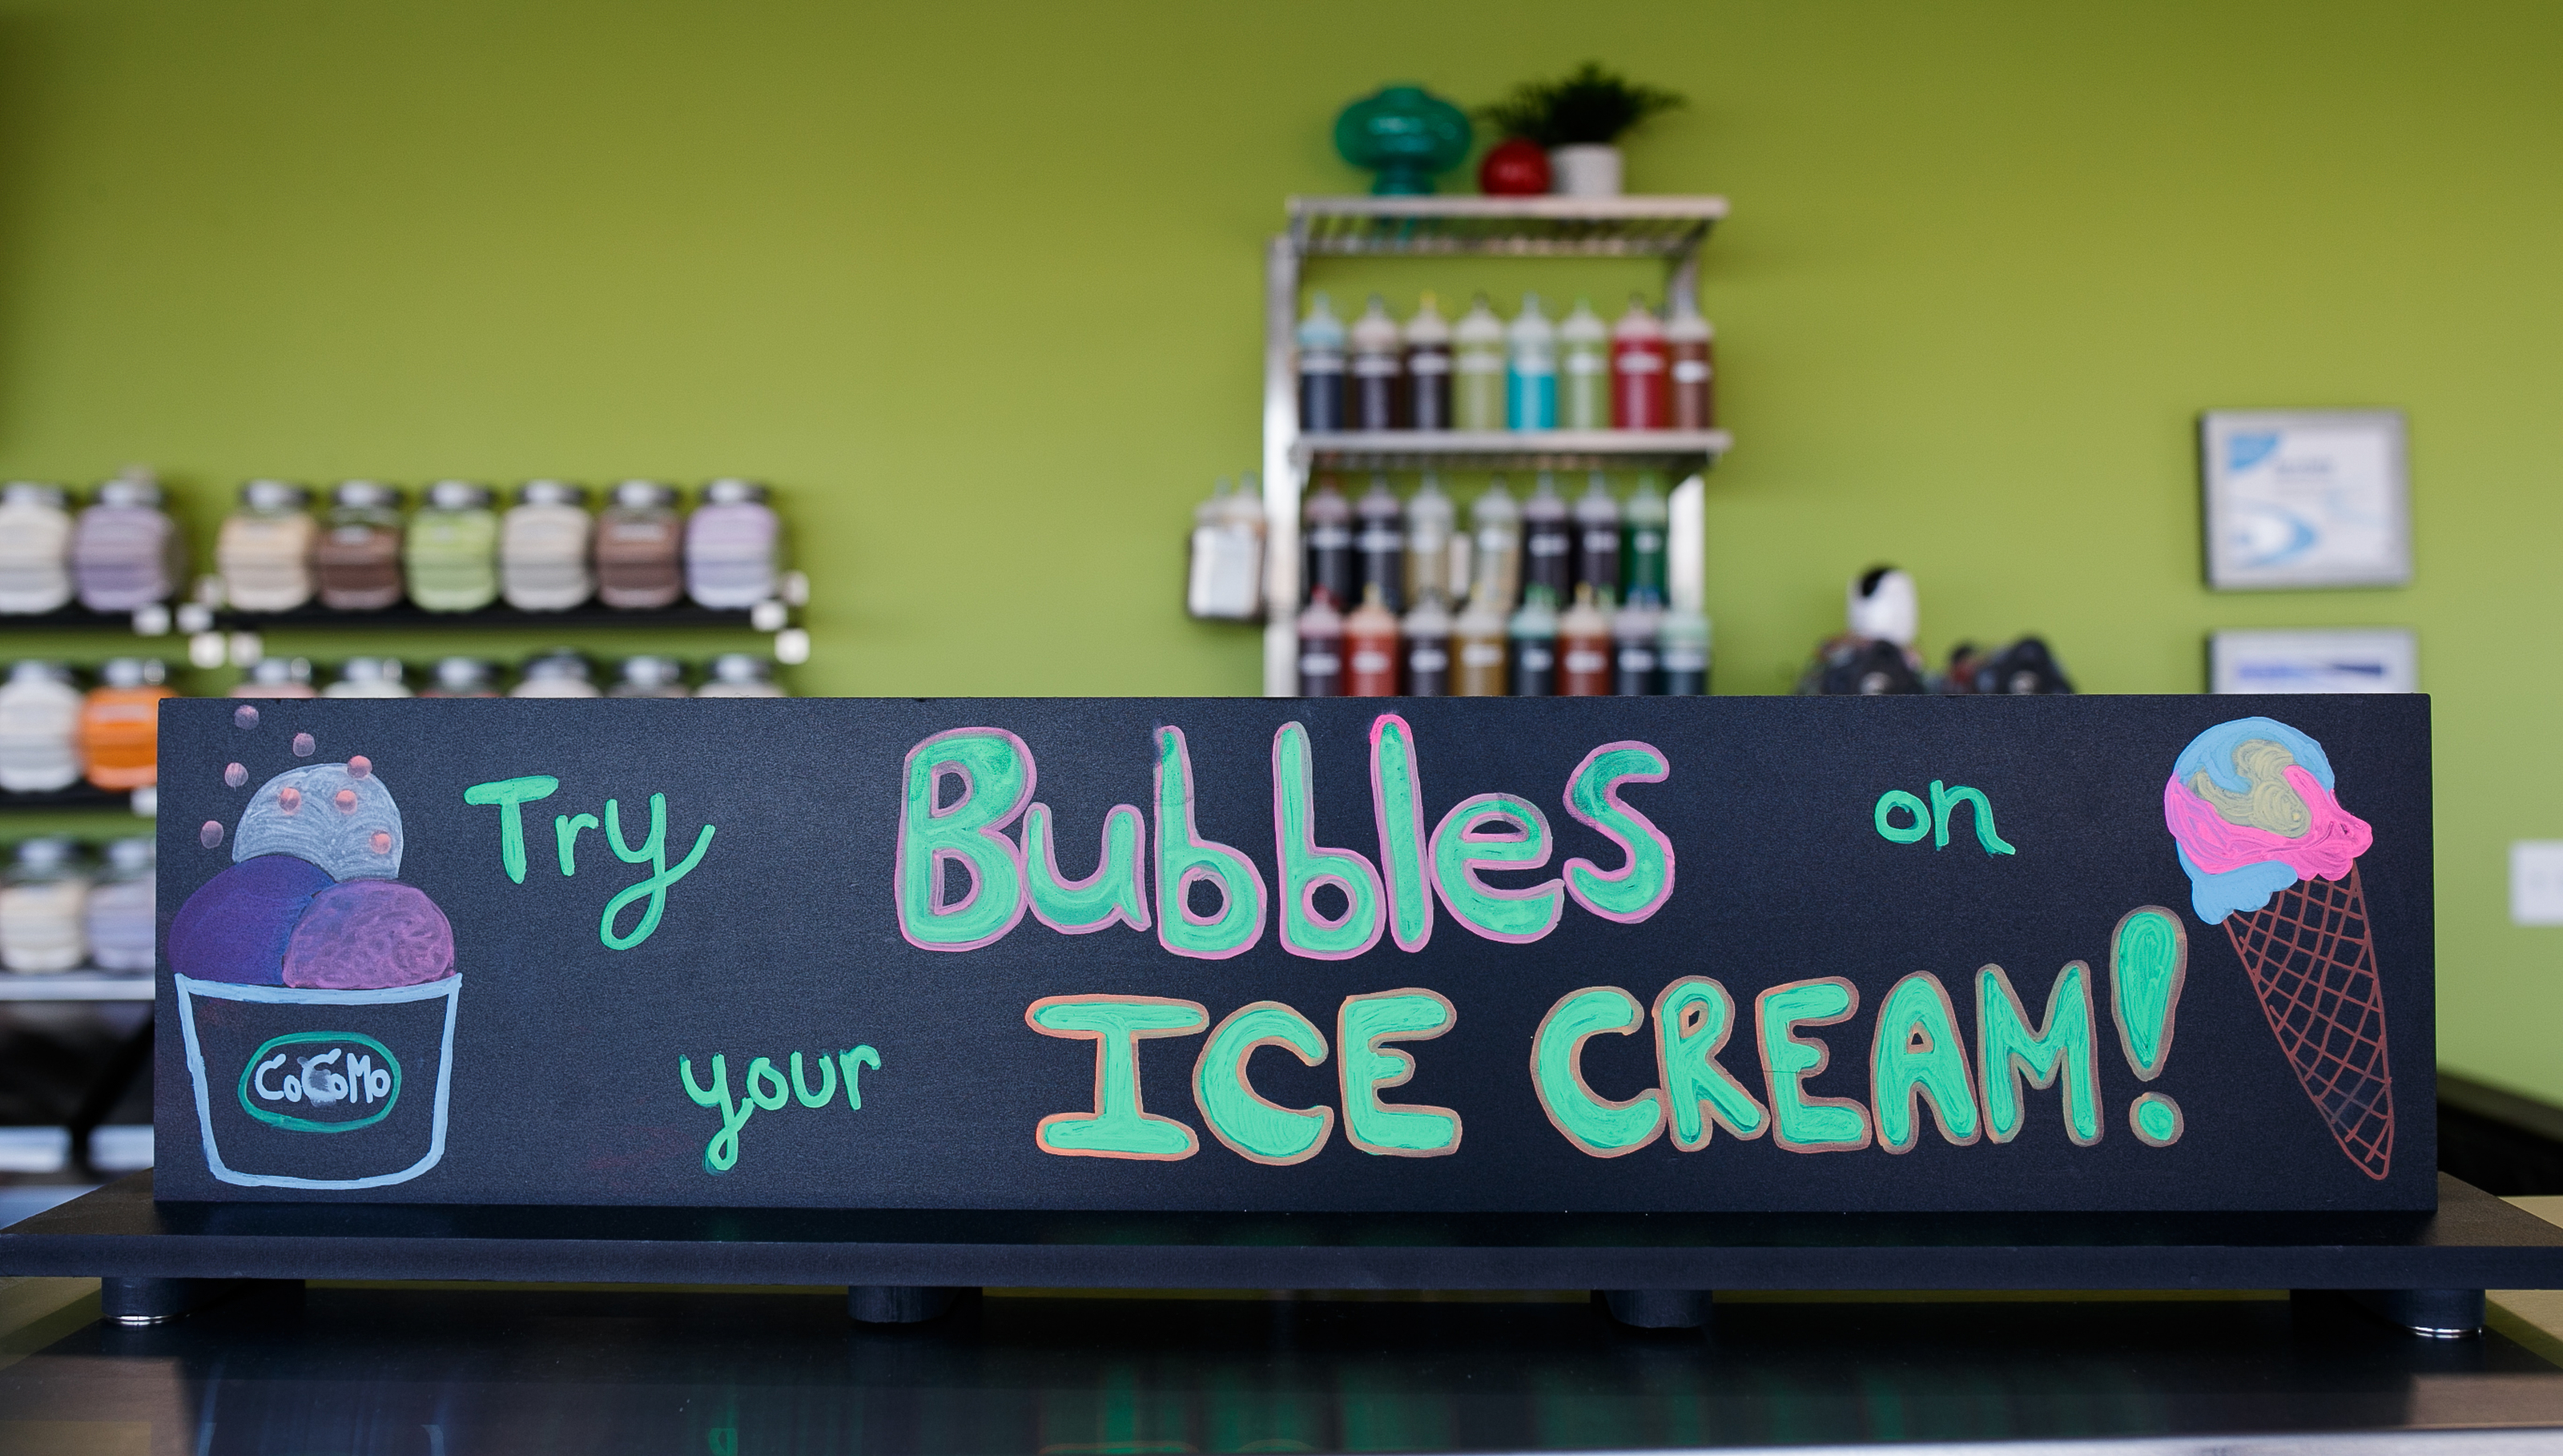 Try Bubbles on
your ICE CREAM!
CoCoMo